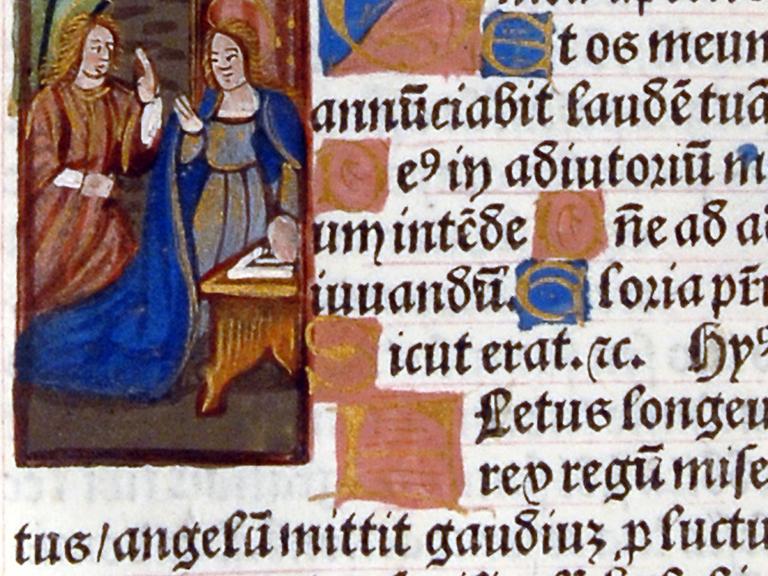 Et os meum
annūciabit laudē tuā
eꝰ in adiutoriū m
um intēde One ad a
iuuandū. Gloria pr̄i
Sicut erat. ⁊c. Hyꝰ
Fletus longeu
rex regū mise
tus/angelū mittit gaudiuꝫ ꝑ luctu